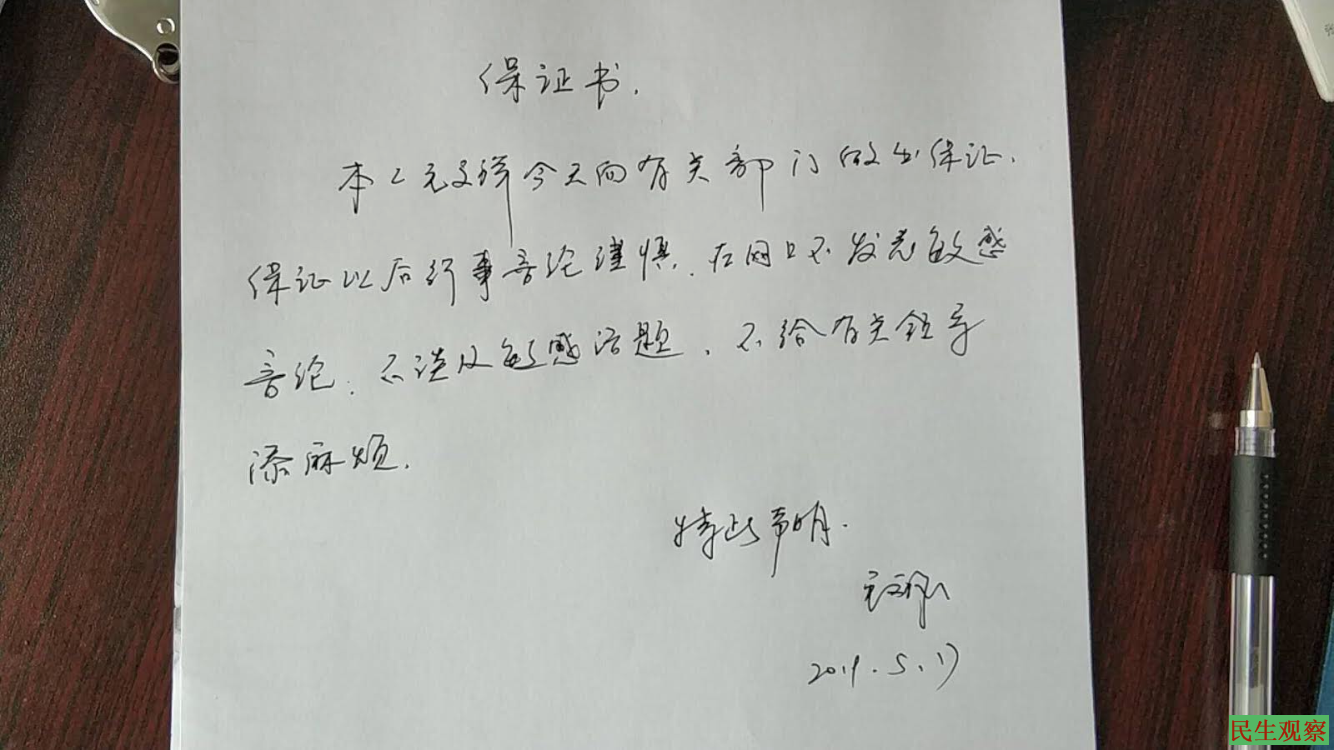 保证书.
本人 今天向有关部门做出保证.
保证以后行事言论谨慎.在网上不发表敏感
言论.不谈及敏感话题、不给有关领导
添麻烦.
特此声明.
2019.5.17
民生观察